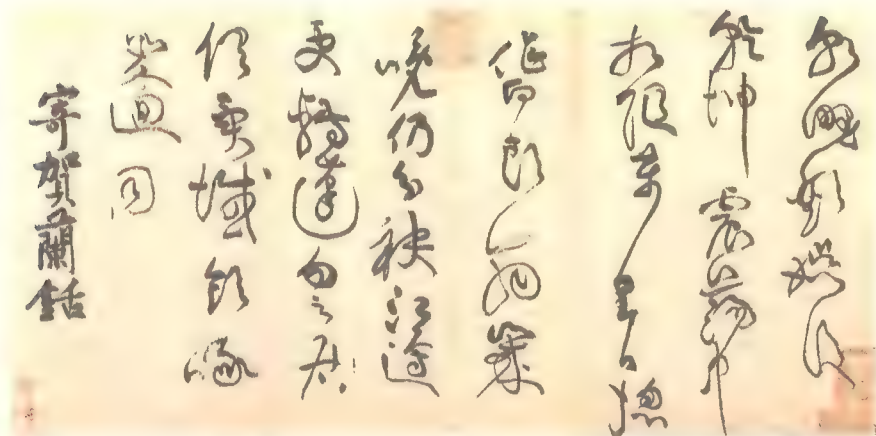 朝野歡娛後
乾坤震蕩中
相隨萬里日揔
作白頭翁歲
晚仍分袂江邊
更轉蓬勿云
俱異域飲啄
幾迴同
寄賀蘭銛